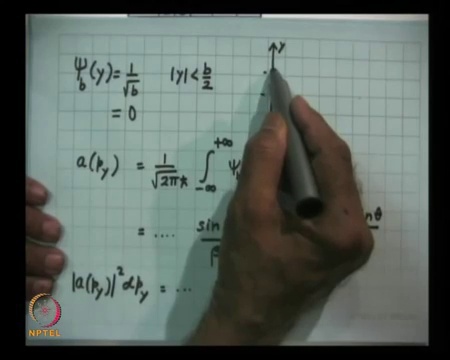 ψ_b(y) = 1/√b |y| < b/2 y
= 0
a(p_y) = 1/√(2πℏ) ∫_{-∞}^{+∞} ψ
= .... sin / β nθ
|a(p_y)|² dp_y = ...
NPTEL